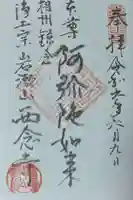 奉拝 令和 年六月九日
本尊
阿弥陀如来
相州鎌倉
浄土宗 岩瀬山 西念寺